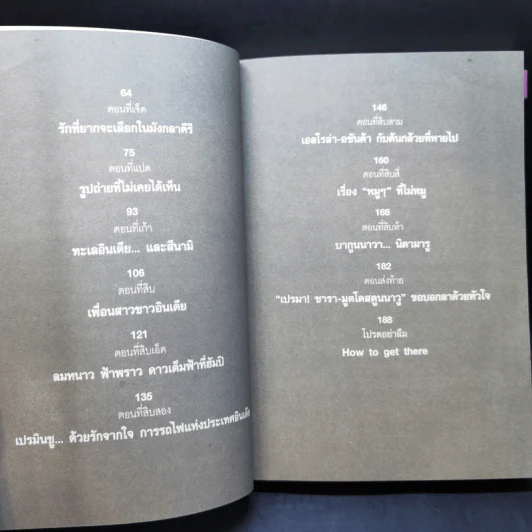 64
ตอนที่เจ็ด
รักที่ยากจะเลือกในมังกลาคีรี
75
ตอนที่แปด
รูปถ่ายที่ไม่เคยได้เห็น
93
ตอนที่เก้า
ทะเลอินเดีย... และสึนามิ
106
ตอนที่สิบ
เพื่อนสาวชาวอินเดีย
121
ตอนที่สิบเอ็ด
ลมหนาว ฟ้าพราว ดาวเต็มฟ้าที่ฮัมปิ
135
ตอนที่สิบสอง
เปรมินชู... ด้วยรักจากใจ การรถไฟแห่งประเทศอินเดีย
146
ตอนที่สิบสาม
เอลโรล่า-อชันต้า กับต้นกล้วยที่หายไป
160
ตอนที่สิบสี่
เรื่อง "หมูๆ" ที่ไม่หมู
168
ตอนที่สิบห้า
บากูนนาวา... นิดามารู
182
ตอนส่งท้าย
"เปรมา! ชารา-มูตโดสคูนนาวู" ขอบอกลาด้วยหัวใจ
188
โปรดอย่าลืม
How to get there